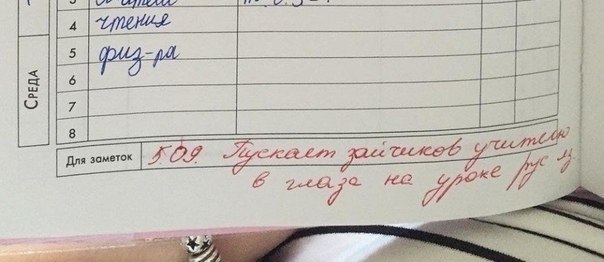 СРЕДА
3
4 чтения
5 физ-ра
6
7
8
Для заметок 5.09. Пускает зайчиков учителю
в глаза на уроке рус яз